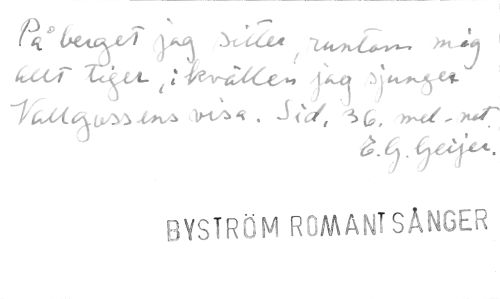 På berget jag sitter, runtom mig
allt tiger, i kvällen jag sjunger
Vallgossens visa. Sid. 36. mel-not.
E.G. Geijer.
BYSTRÖM ROMANTSÅNGER